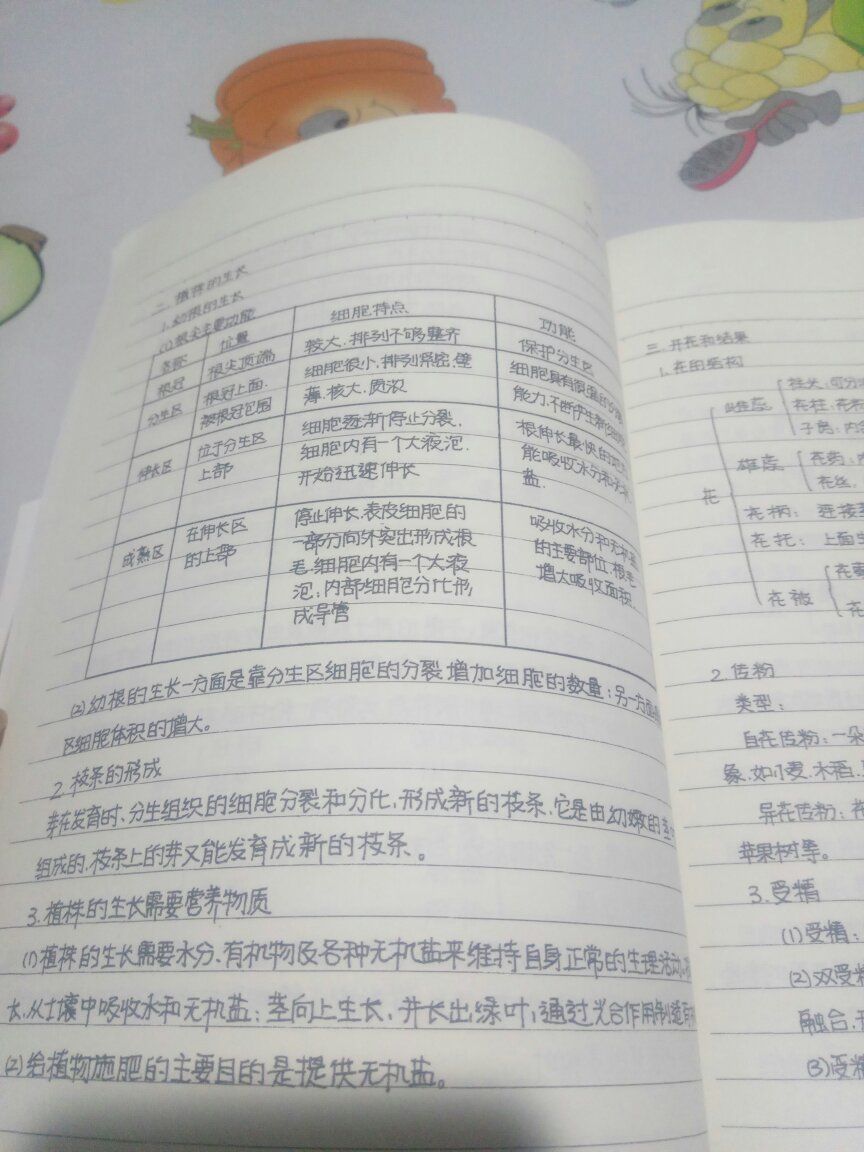 二.植株的生长
1.幼根的生长
(1)根尖主要功能
名称 位置 细胞特点 功能
根冠 根尖顶端 较大.排列不够整齐 保护分生区
分生区 根冠上面. 细胞很小.排列紧密,壁 细胞具有很强的分裂
被根冠包围 薄.核大.质浓 能力,不断产生新的细胞
伸长区 位于分生区 细胞逐渐停止分裂. 根伸长最快的地方
上部 细胞内有一个大液泡. 能吸收水分和无机
开始迅速伸长 盐.
成熟区 在伸长区 停止伸长.表皮细胞的 吸收水分和无机盐
的上部 一部分向外突出形成根 的主要部位.根毛
毛.细胞内有一个大液 增大吸收面积.
泡,内部细胞分化形
成导管
(2)幼根的生长一方面是靠分生区细胞的分裂增加细胞的数量;另一方面
区细胞体积的增大。
2.枝条的形成
芽在发育时、分生组织的细胞分裂和分化,形成新的枝条.它是由幼嫩的茎
组成的,枝条上的芽又能发育成新的枝条。
3.植株的生长需要营养物质
(1)植株的生长需要水分、有机物及各种无机盐来维持自身正常的生理活动
长.从土壤中吸收水和无机盐;茎向上生长,并长出绿叶,通过光合作用制造
(2)给植物施肥的主要目的是提供无机盐。
三.开花和结果
1.花的结构
花
雌蕊 柱头:
花柱:
子房:
雄蕊 花药:
花丝.
花柄: 连接
花托: 上面
花被
2.传粉
类型:
自花传粉:一朵
象.如小麦.水稻.
异花传粉:
苹果树等。
3.受精
(1)受精:
(2)双受精
融合.
(3)受精